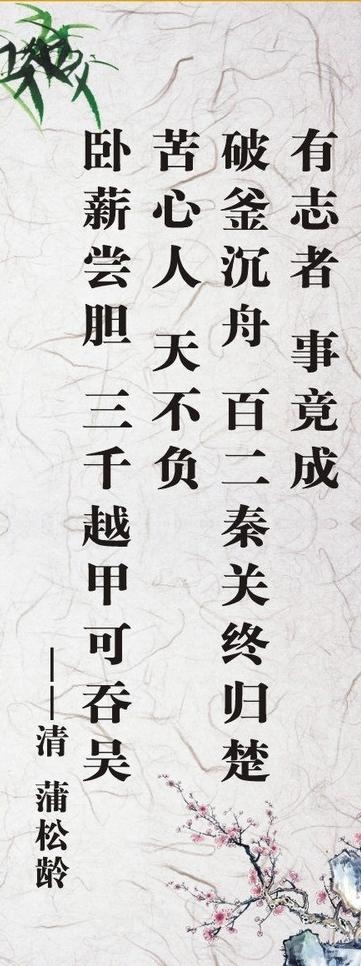 有志者 事竟成
破釜沉舟 百二秦关终归楚
苦心人 天不负
卧薪尝胆 三千越甲可吞吴
——清 蒲松龄